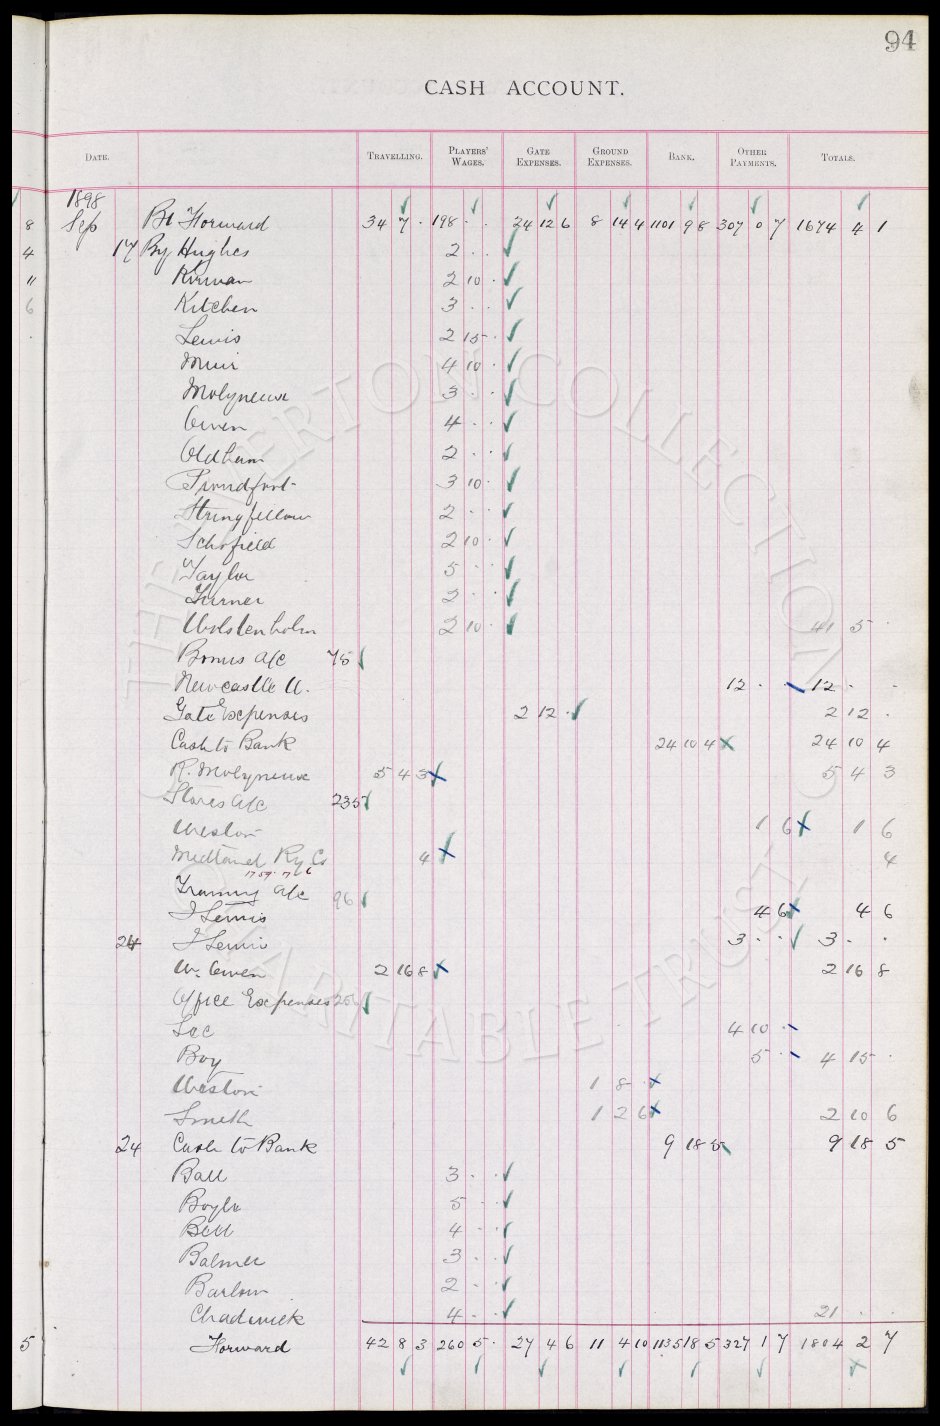 94
CASH ACCOUNT.
DATE. TRAVELLING. PLAYERS' WAGES. GATE EXPENSES. GROUND EXPENSES. BANK. OTHER PAYMENTS. TOTALS.
1898
8 Sep Bt Forward 34 7 . 198 . . 24 12 6 8 14 4 1101 9 8 307 0 7 1674 4 1
4 17 By Hughes 2 . .
" Kirwan 2 10 .
6 Kitchen 3 . .
Lewis 2 15 .
Muir 4 10 .
Molyneux 3 . .
Owen 4 . .
Oldham 2 . .
Proudfoot 3 10 .
Stringfellow 2 . .
Schofield 2 10 .
Taylor 5 . .
Turner 2 . .
Wolstenholm 2 10 . 41 5 .
Bonus a/c 75
Newcastle U. 12 . . 12 . .
Gate Expenses 2 12 . 2 12 .
Cash to Bank 24 10 4 24 10 4
R. Molyneux 5 4 3 5 4 3
Stores a/c 235
Weston 1 6 1 6
Midland Ry Co 4 4
1759 7 6
Training a/c 96
J Lewis 4 6 4 6
24 J Lewis 3 . . 3 . .
W. Owen 2 16 8 2 16 8
Office Expenses 256
Sec 4 10 .
Boy 5 . 4 15 .
Weston 1 8 .
Smith 1 2 6 2 10 6
24 Cash to Bank 9 18 5 9 18 5
Ball 3 . .
Boyle 5 . .
Bell 4 . .
Balmer 3 . .
Barlow 2 . .
Chadwick 4 . . 21 . .
5 Forward 42 8 3 260 5 . 27 4 6 11 4 10 1135 18 5 327 1 7 1804 2 7
THE EVERTON COLLECTION
CHARITABLE TRUST